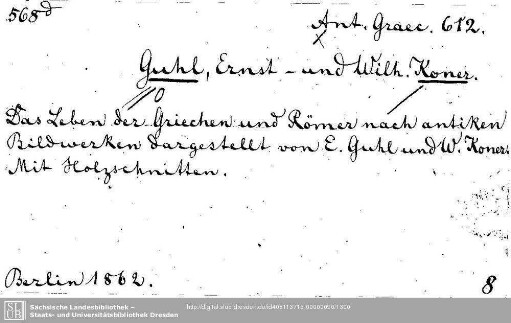 568d
Ant. Graec. 612.
x
Guhl, Ernst – und Wilh. Koner.
Das Leben der Griechen und Römer nach antiken
Bildwerken dargestellt von E. Guhl und W. Koner.
Mit Holzschnitten.
Berlin 1862.
8
Sächsische Landesbibliothek –
Staats- und Universitätsbibliothek Dresden